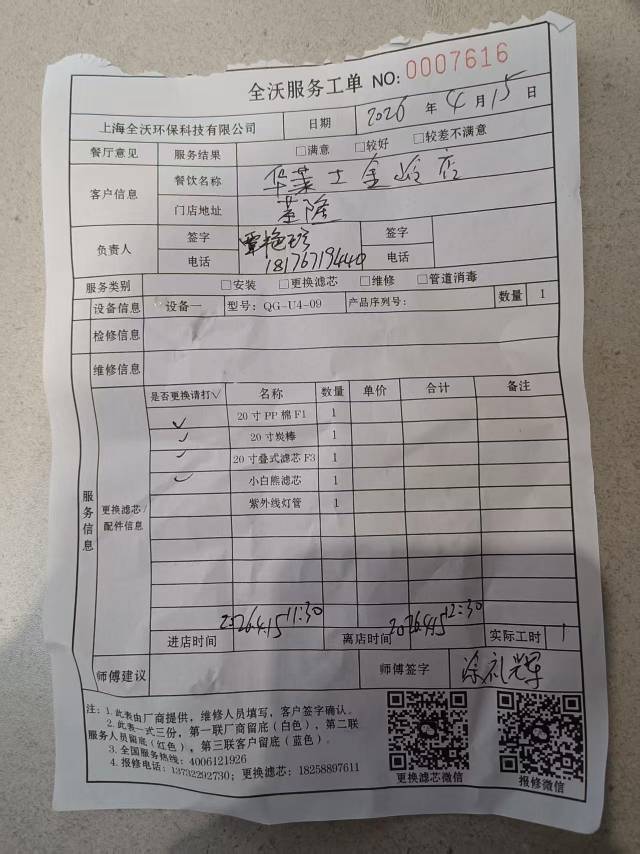 全沃服务工单 NO: 0007616
上海全沃环保科技有限公司 日期 2026 年 4 月 15 日
餐厅意见 服务结果 □满意 □较好 □较差不满意
客户信息 餐饮名称 华莱士金岭店
门店地址 荼隆
负责人 签字 覃艳珍 签字
电话 18176719440 电话
服务类别 □安装 □更换滤芯 □维修 □管道消毒
设备信息 设备一 型号: QG-U4-09 产品序列号: 数量 1
检修信息
维修信息
服务信息 更换滤芯/配件信息
是否更换请打√ 名称 数量 单价 合计 备注
✓ 20寸PP棉F1 1
✓ 20寸炭棒 1
✓ 20寸叠式滤芯F3 1
✓ 小白熊滤芯 1
紫外线灯管 1
进店时间 2026.4.15 11:30 离店时间 2026.4.15 12:30 实际工时 1
师傅建议 师傅签字 涂礼辉
注: 1.此表由厂商提供，维修人员填写，客户签字确认。
2.此表一式三份，第一联厂商留底(白色)，第二联
服务人员留底(红色)，第三联客户留底(蓝色)。
3.全国服务热线: 4006121926
4.报修电话: 13732292730; 更换滤芯: 18258897611
更换滤芯微信 报修微信